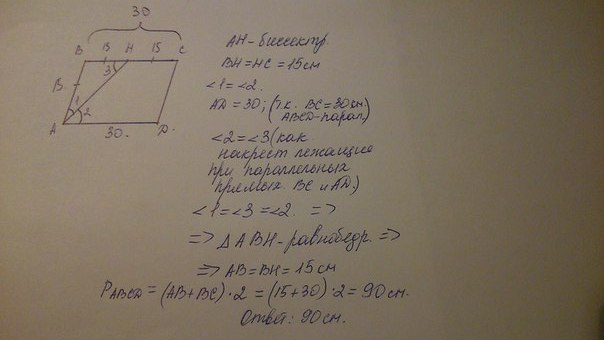 30
B 15 H 15 C
3
15
1
2
A 30. D.
AH - биссектр.
BH = HC = 15 см
∠1 = ∠2.
AD = 30; (т.к. BC = 30 см
ABCD - парал.)
∠2 = ∠3 (как
накрест лежащие
при параллельных
прямых BC и AD.)
∠1 = ∠3 = ∠2. =>
=> △ABH - равнобедр. =>
=> AB = BH = 15 см
P ABCD = (AB + BC) · 2 = (15 + 30) · 2 = 90 см.
Ответ: 90 см.